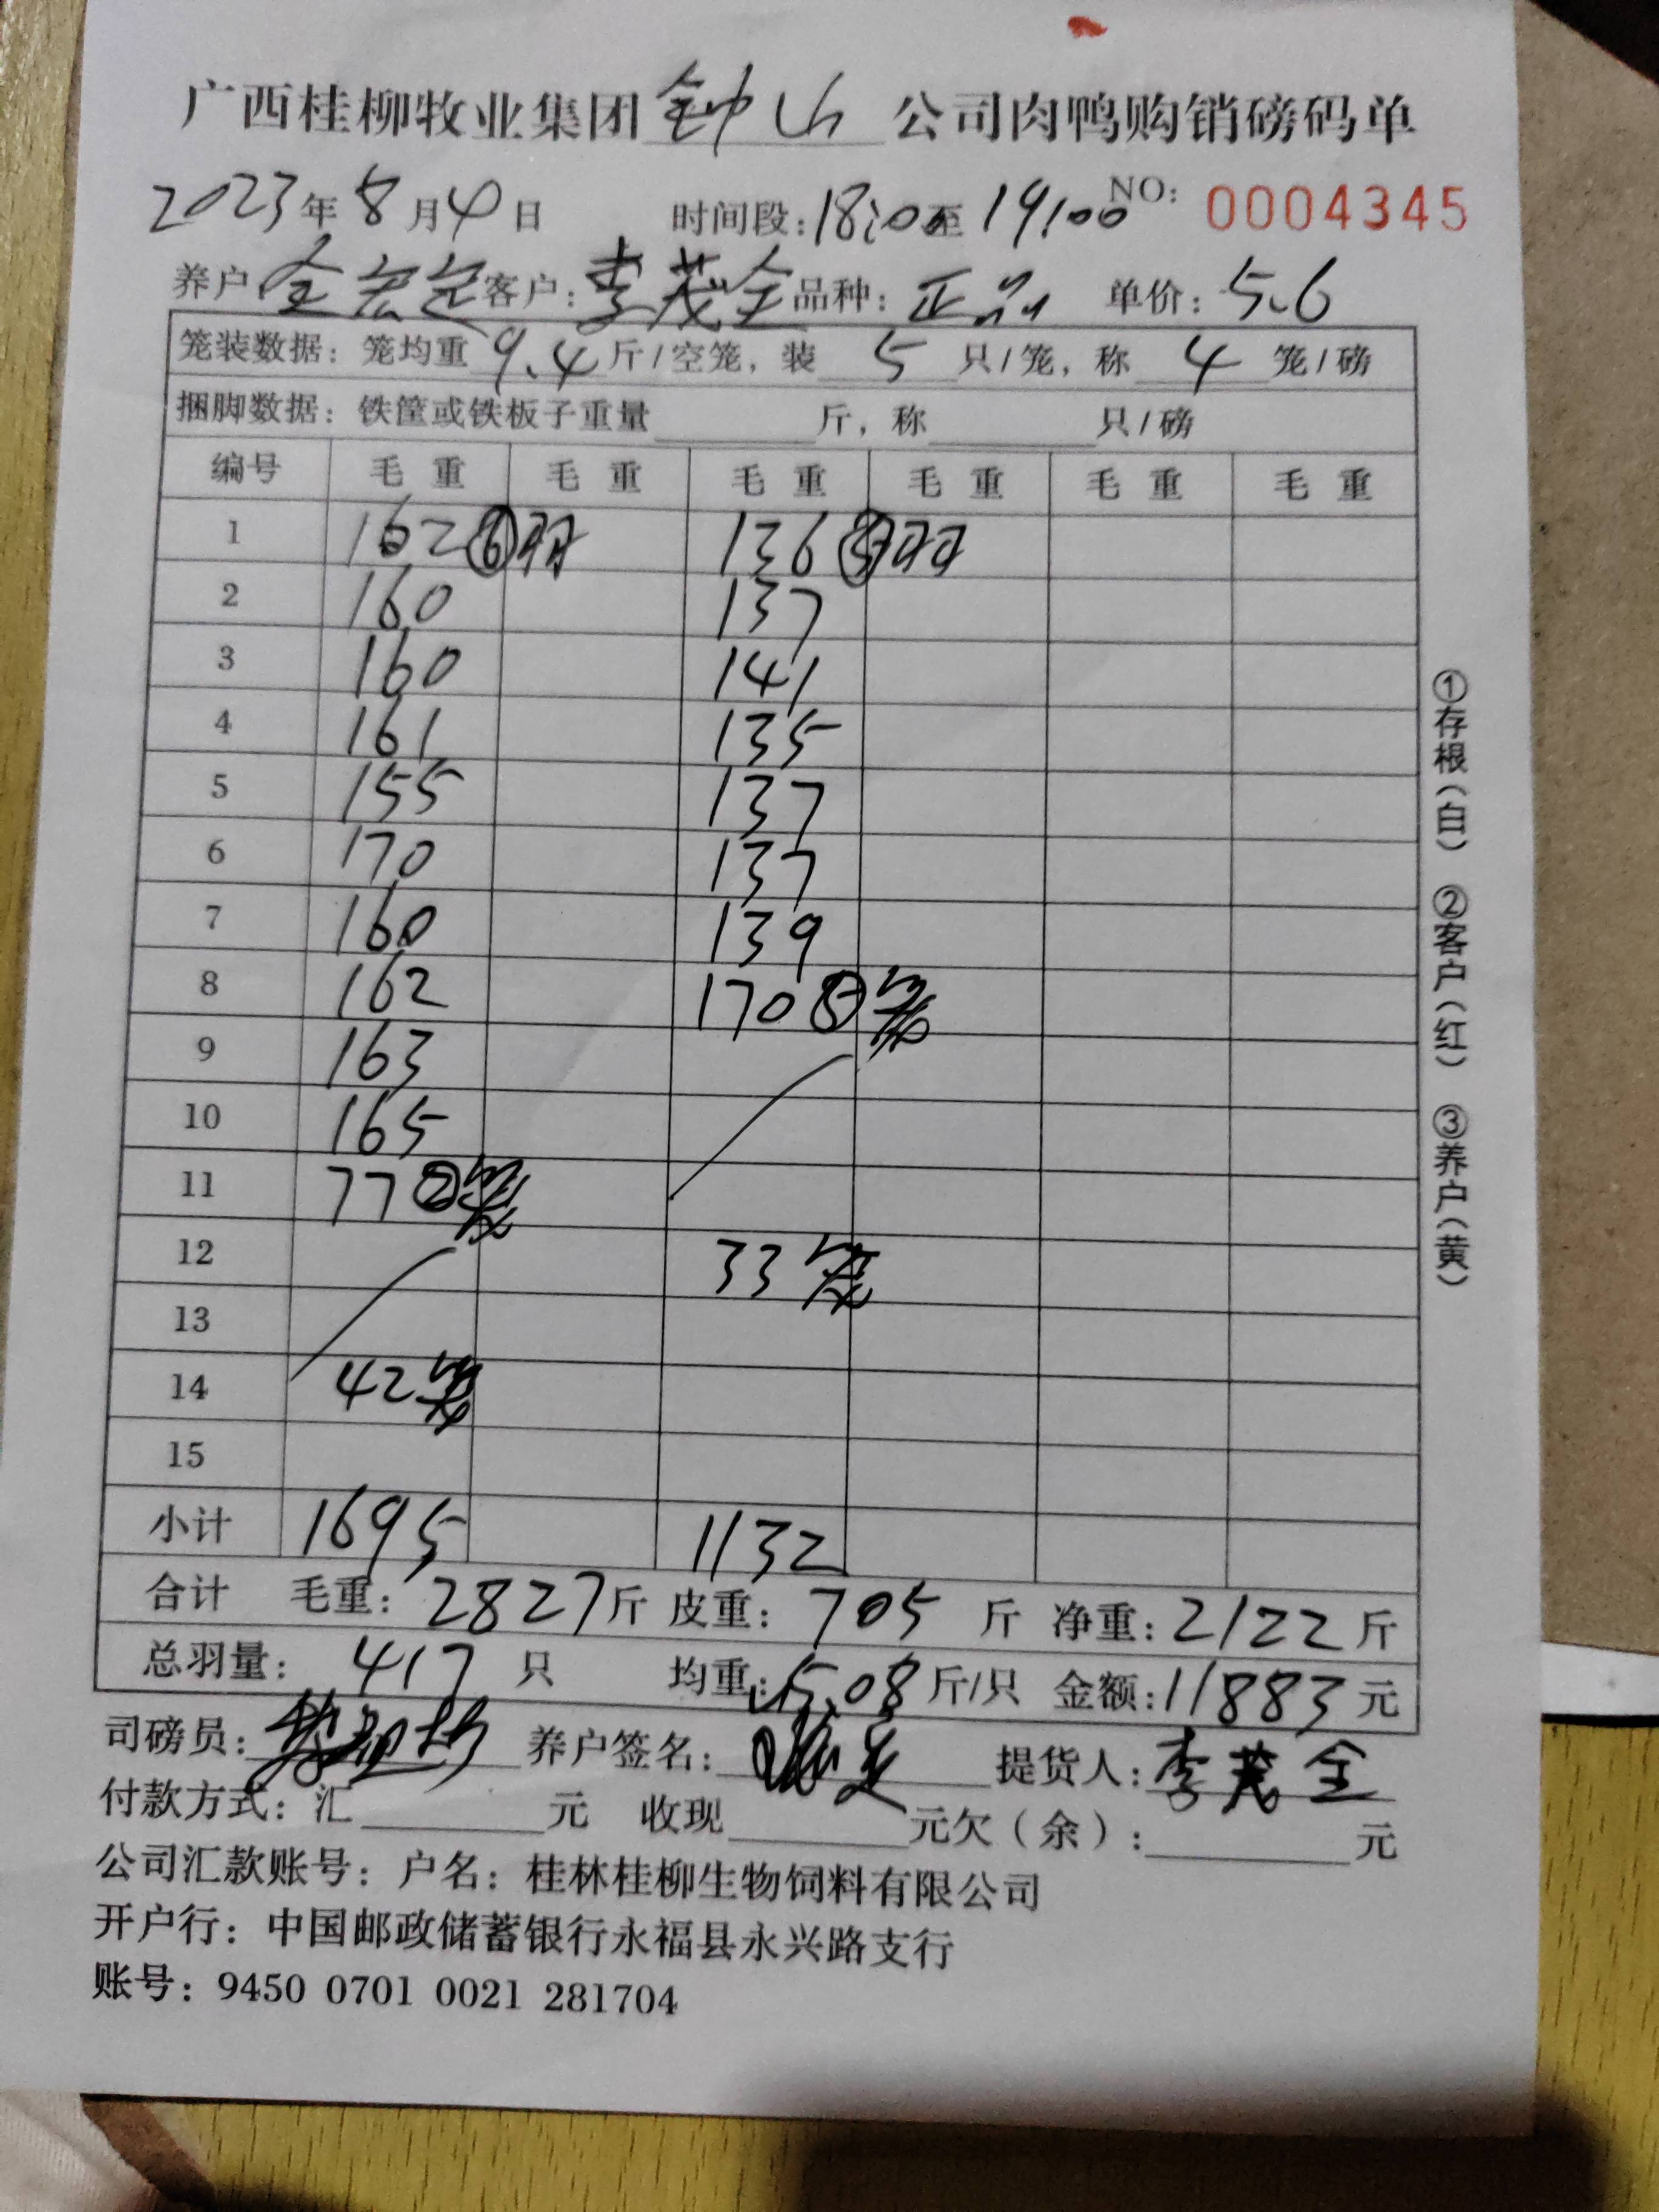 广西桂柳牧业集团钟山公司肉鸭购销磅码单
2023年8月4日 时间段:18:00至19:00 NO: 0004345
养户 全宏定 客户:李茂全 品种:正品 单价:5.6
笼装数据:笼均重 9.4 斤/空笼,装 5 只/笼,称 4 笼/磅
捆脚数据:铁筐或铁板子重量 斤,称 只/磅
编号 毛重 毛重 毛重 毛重 毛重 毛重
1 162 ⑥羽 136 ⑤羽
2 160 137
3 160 141
4 161 135
5 155 137
6 170 137
7 160 139
8 162 170 ⑤笼
9 163
10 165
11 77 ②笼
12 33笼
13
14 42笼
15
小计 1695 1132
合计 毛重:2827斤 皮重:705斤 净重:2122斤
总羽量:417只 均重:5.08斤/只 金额:11883元
司磅员: 养户签名: 提货人:李茂全
付款方式:汇 元 收现 元欠(余): 元
公司汇款账号:户名:桂林桂柳生物饲料有限公司
开户行:中国邮政储蓄银行永福县永兴路支行
账号:9450 0701 0021 281704
①存根(白) ②客户(红) ③养户(黄)